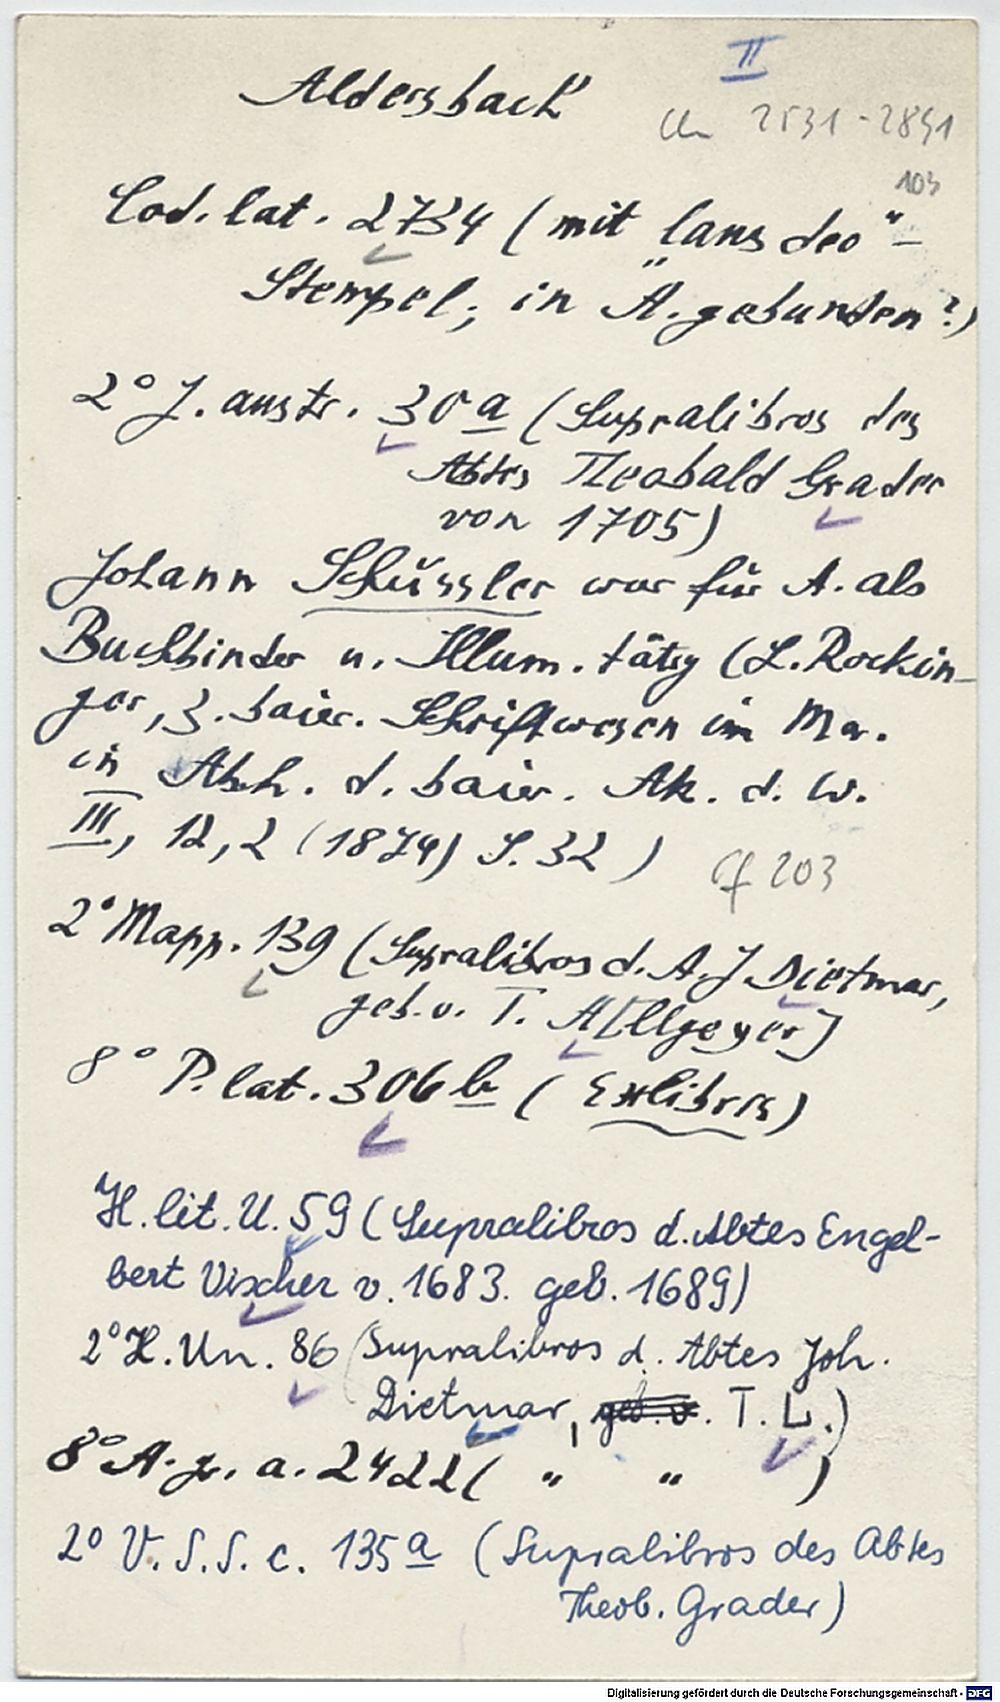 II
Aldersbach
Clm 2531-2891
103
Cod. lat. 2734 (mit "laus deo"-
Stempel; in A. gebunden?)
2° J. austr. 30 a (Supralibros des
Abtes Theobald Grader
von 1705)
Johann Schüssler war für A. als
Buchbinder u. Illum. tätig (L. Rockin-
ger, z. baier. Schriftwesen im Ma.
in Abh. d. baier. Ak. d. W.
III, 12,2 (1874) S. 32)
cf 203
2° Mapp. 139 (Supralibros d. A. J. Dietmar,
geb. v. T. A[llgeyer]
8° P. lat. 306 b (Exlibris)
H. lit. U. 59 (Supralibros d. Abtes Engel-
bert Vischer v. 1683. geb. 1689)
2° H. Un. 86 (Supralibros d. Abtes Joh.
Dietmar, geb. v. T. L.)
8° A. gr. a. 2422 ( " " )
2° V. S. S. c. 135 a (Supralibros des Abtes
Theob. Grader)
Digitalisierung gefördert durch die Deutsche Forschungsgemeinschaft - DFG